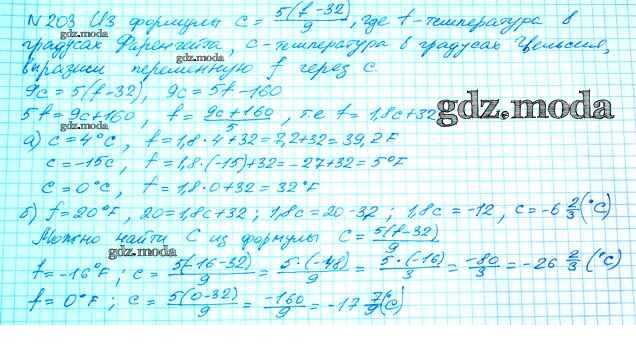 №203 Из формулы c = 5(f-32)/9, где f-температура в
градусах Фаренгейта, c-температура в градусах Цельсия,
gdz.moda
вырази переменную f через c.
9c = 5(f-32), 9c = 5f-160
5f = 9c+160, f = 9c+160/5, т.е f = 1,8c+32
gdz.moda
gdz.moda
а) c = 4°C, f = 1,8·4+32 = 7,2+32 = 39,2F
c = -15c, f = 1,8·(-15)+32 = -27+32 = 5°F
c = 0°C, f = 1,8·0+32 = 32°F
б) f = 20°F, 20 = 1,8c+32; 1,8c = 20-32; 1,8c = -12, c = -6 2/3(°C)
Можно найти C из формулы c = 5(f-32)/9
gdz.moda
f = -16°F; c = 5(-16-32)/9 = 5·(-48)/9 = 5·(-16)/3 = -80/3 = -26 2/3 (°C)
f = 0°F; c = 5(0-32)/9 = -160/9 = -17 7/9(°C)